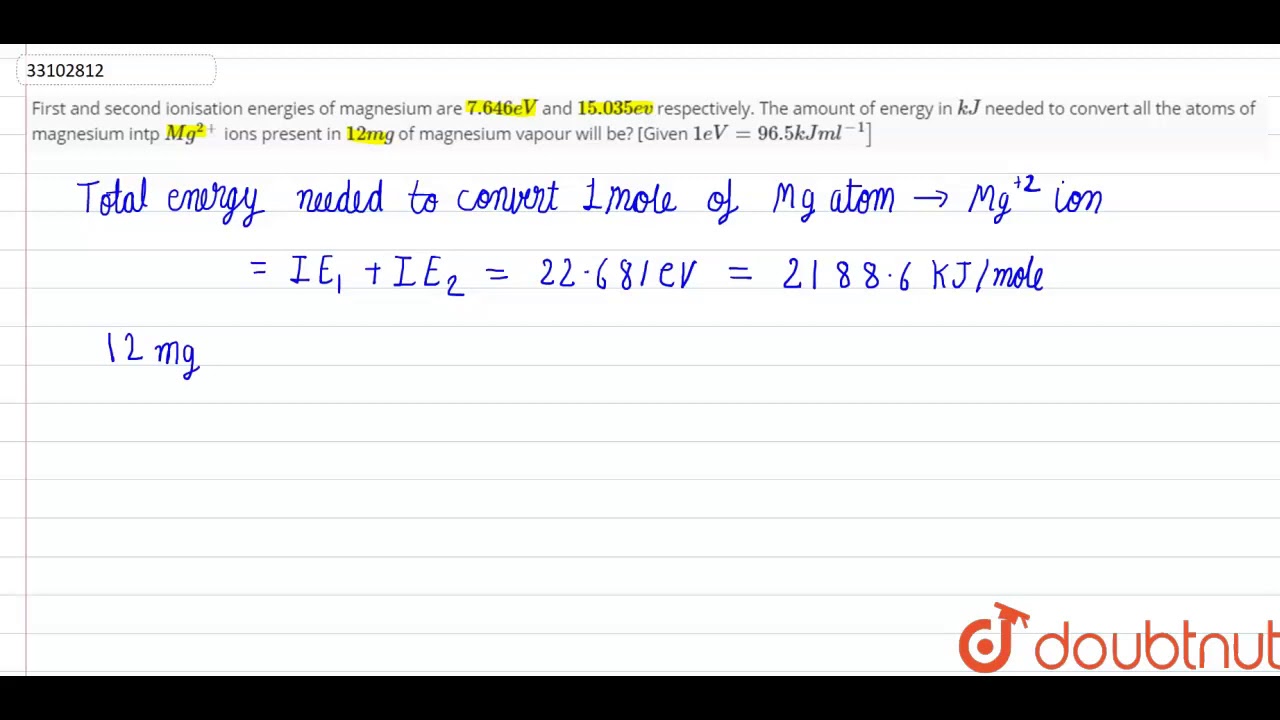 33102812
First and second ionisation energies of magnesium are 7.646eV and 15.035ev respectively. The amount of energy in kJ needed to convert all the atoms of
magnesium intp Mg²⁺ ions present in 12mg of magnesium vapour will be? [Given 1eV = 96.5kJml⁻¹]
Total energy needed to convert 1 mole of Mg atom → Mg⁺² ion
= IE₁ + IE₂ = 22.681eV = 2188.6 KJ/mole
12 mg
doubtnut